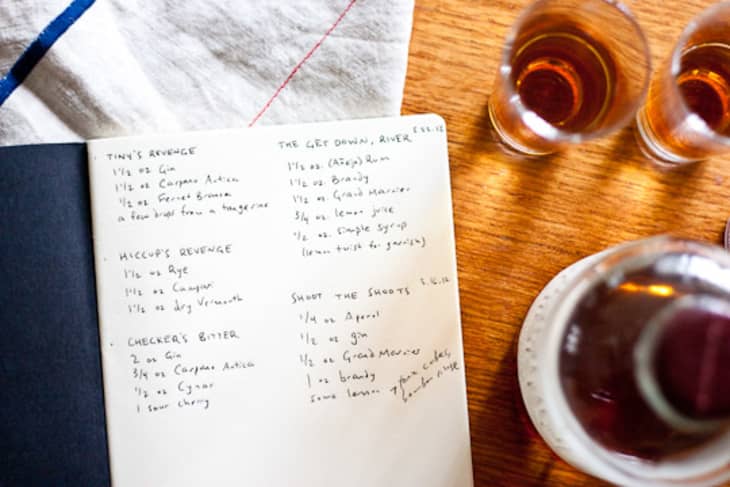 TINY'S REVENGE
1 1/2 oz Gin
1 1/2 oz Carpano Antica
1/2 oz Fernet Branca
a few drops from a tangerine
HICCUP'S REVENGE
1 1/2 oz Rye
1 1/2 oz Campari
1 1/2 oz dry Vermouth
CHECKER'S BITTER
2 oz Gin
3/4 oz Carpano Antica
1/2 oz Cynar
1 sour cherry
THE GET DOWN, RIVER
1 1/2 oz. (Añejo) Rum
1 1/2 oz. Brandy
1 1/2 oz. Grand Marnier
3/4 oz. lemon juice
1/2 oz. simple syrup
(lemon twist for garnish)
SHOOT THE SHOOTS
1/4 oz Aperol
1/2 oz gin
1/2 oz Grand Marnier
1 oz brandy
some lemon